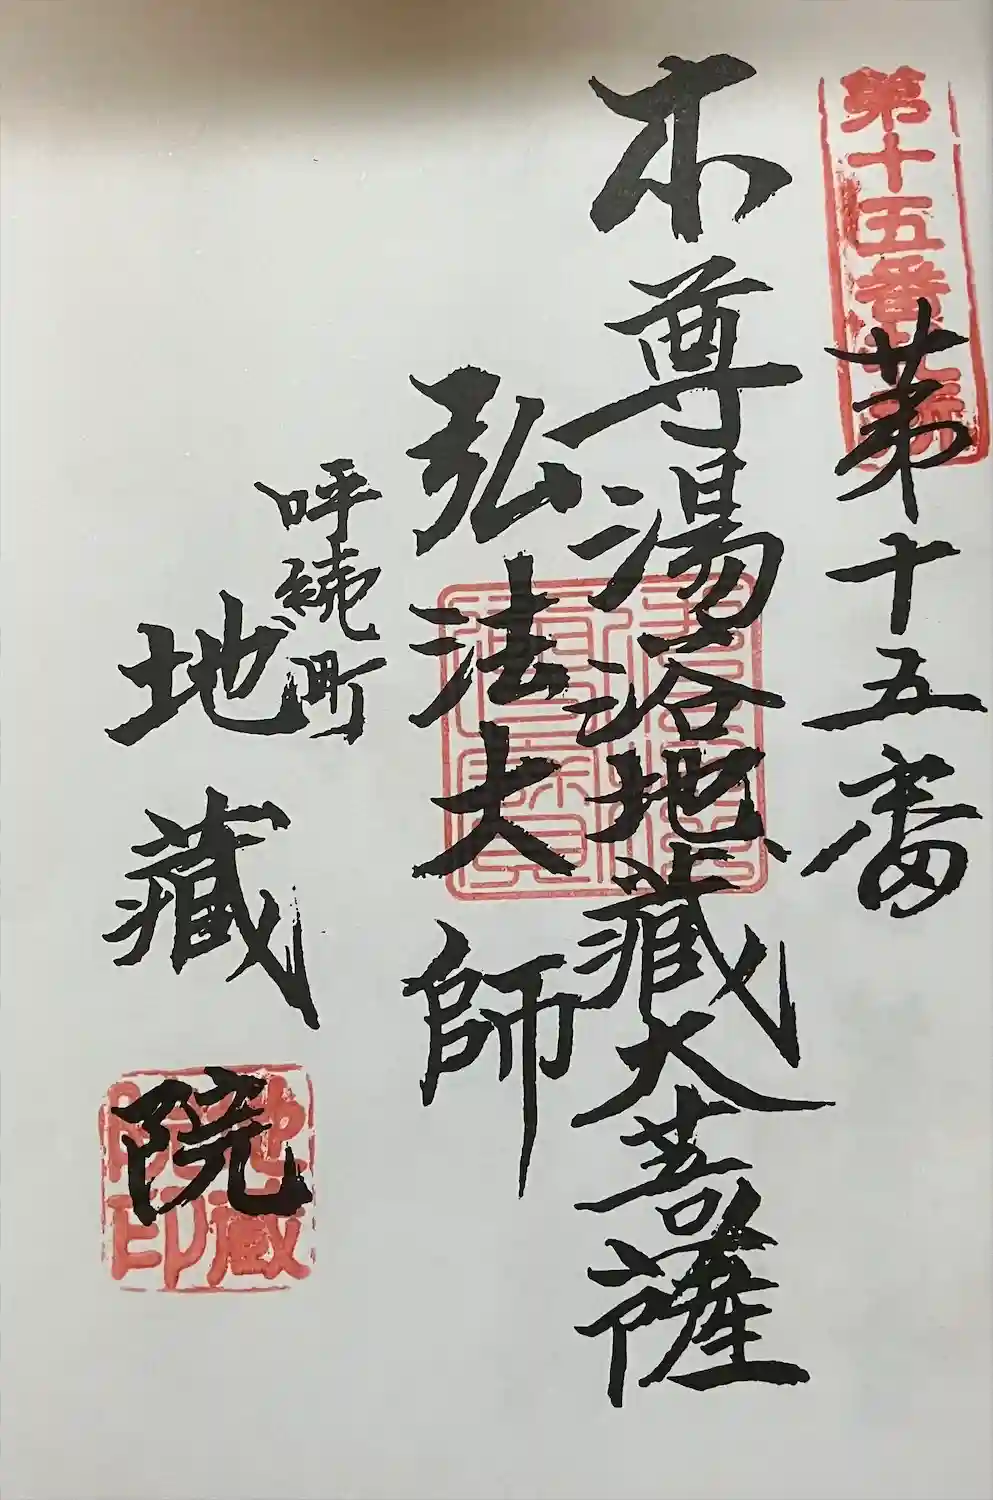 第十五番霊所
第十五番
本尊湯浴地蔵大菩薩
弘法大師
呼続町
地蔵院
地蔵院印